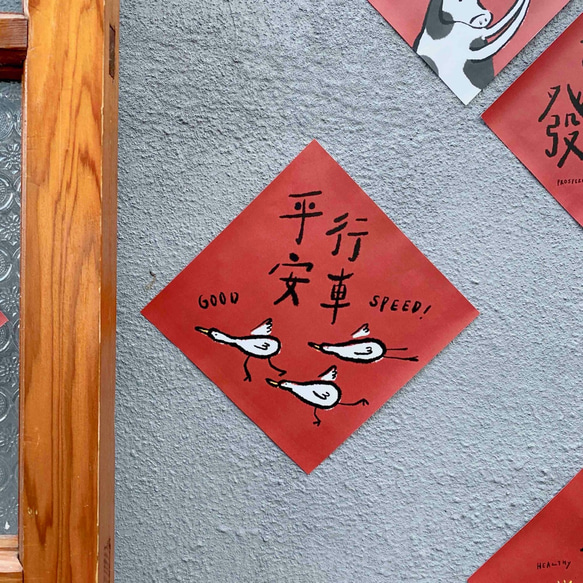 行車
平安
GOOD SPEED!
發
HEALTHY